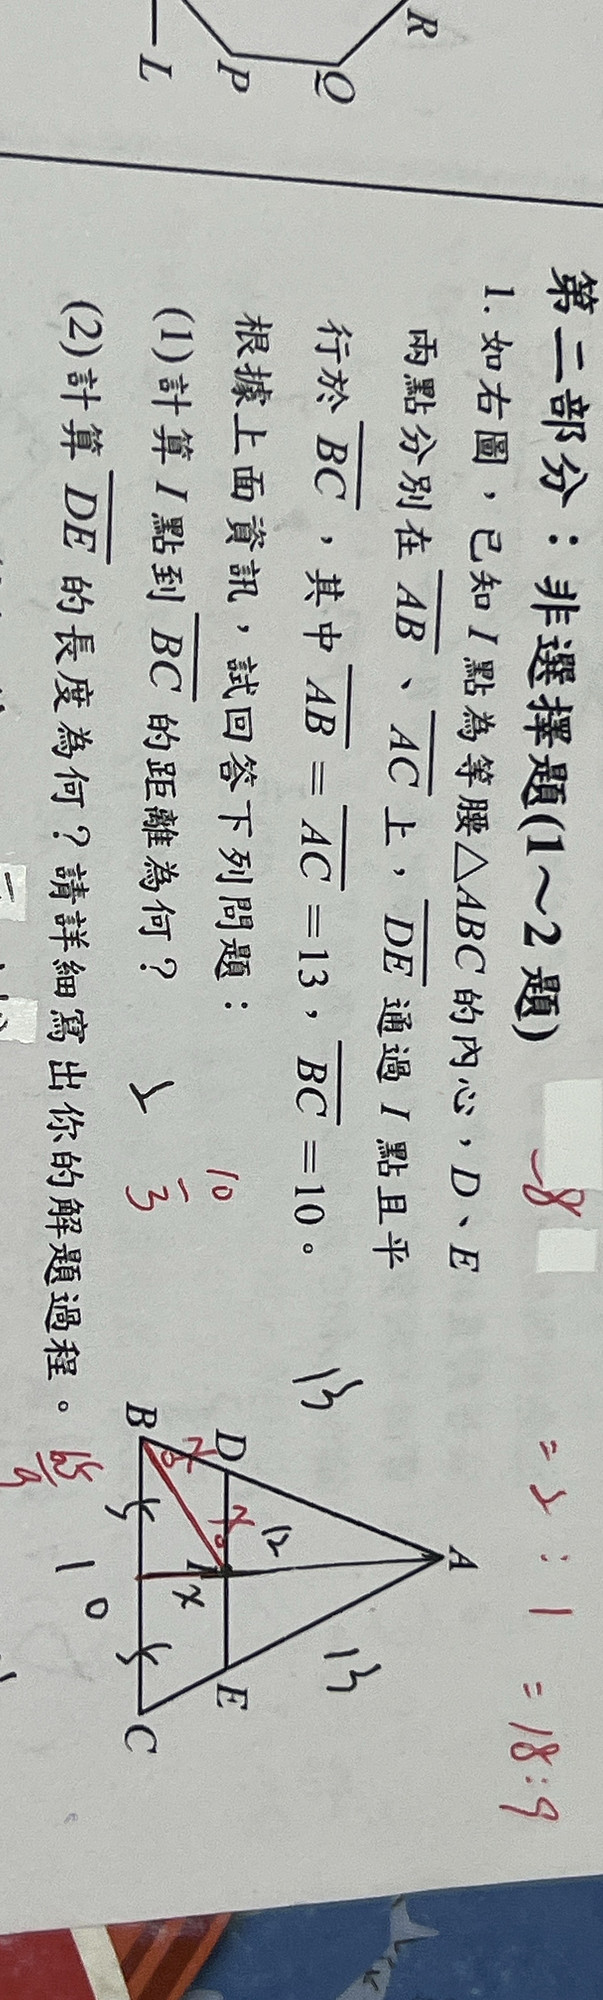 R
Q
P
L
第二部分：非選擇題(1～2題)
-8
= 2 : 1 = 18 : 9
1. 如右圖，已知I點為等腰△ABC的內心，D、E
兩點分別在AB、AC上，DE通過I點且平
行於BC，其中AB=AC=13，BC=10。
根據上面資訊，試回答下列問題：
(1)計算I點到BC的距離為何？
10
3
(2)計算DE的長度為何？請詳細寫出你的解題過程。
65
9
A
13
13
12
D
I
E
x
x
x
B
5
5
C
10